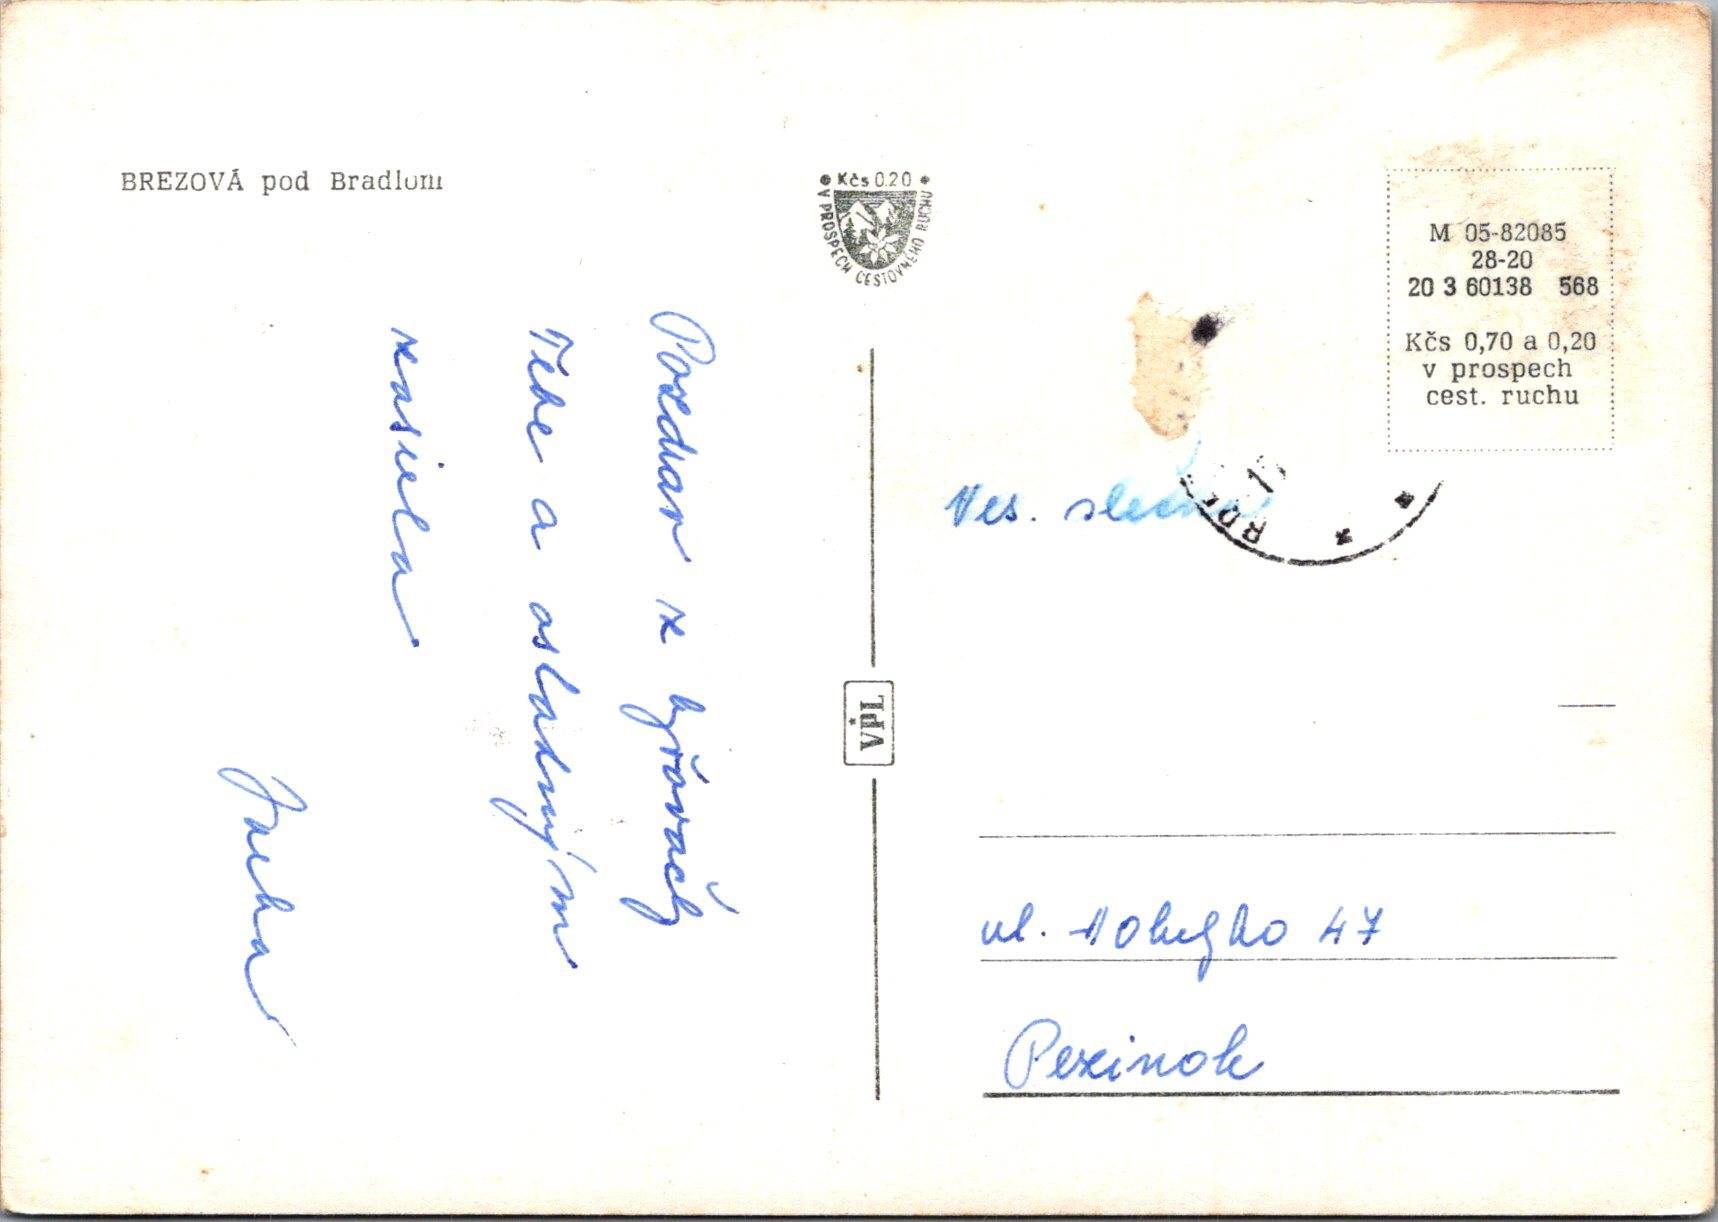 BREZOVÁ pod Bradlom
Kčs 0.20
V PROSPECH CESTOVNÉHO RUCHU
M 05-82085
28-20
20 3 60138 568
Kčs 0,70 a 0,20
v prospech
cest. ruchu
Pozdrav z
Tebe a ostatným
zasiela
VPL
Ves. slečna
ul. 47
Pezinok